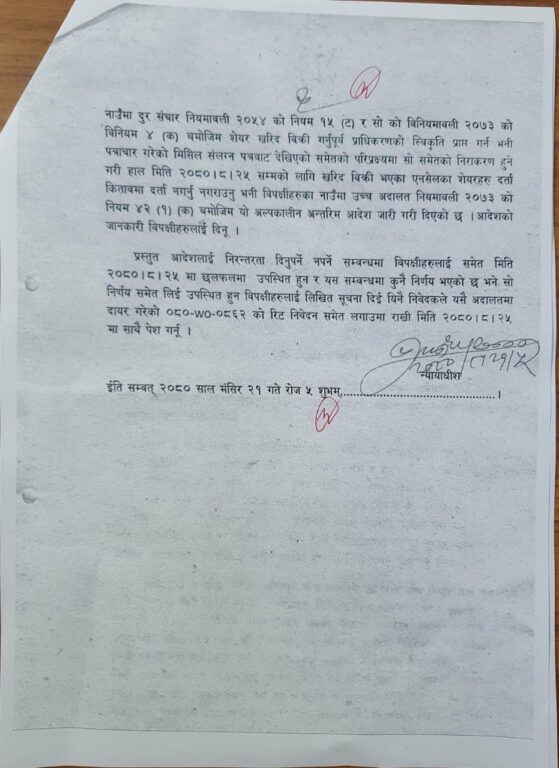 नाउँमा दुर संचार नियमावली २०५४ को नियम १५ (ट) र सो को विनियमावली २०७३ को
विनियम ४ (क) बमोजिम शेयर खरिद बिक्री गर्नुपूर्व प्राधिकरणको स्विकृति प्राप्त गर्न भनी
पत्राचार गरेको मिसिल संलग्न पत्रबाट देखिएको समेतको परिप्रेक्ष्यमा सो समेतको निराकरण हुने
गरी हाल मिति २०८०।८।२५ सम्मको लागि खरिद बिक्री भएका एनसेलका शेयरहरु दर्ता
किताबमा दर्ता नगर्नु नगराउनु भनी विपक्षीहरुका नाउँमा उच्च अदालत नियमावली २०७३ को
नियम ४२ (१) (क) बमोजिम यो अल्पकालीन अन्तरिम आदेश जारी गरी दिएको छ ।आदेशको
जानकारी विपक्षीहरुलाई दिनू ।
प्रस्तुत आदेशलाई निरन्तरता दिनुपर्ने नपर्ने सम्बन्धमा विपक्षीहरुलाई समेत मिति
२०८०।८।२५ मा छलफलमा उपस्थित हुन र यस सम्बन्धमा कुनै निर्णय भएको छ भने सो
निर्णय समेत लिई उपस्थित हुन विपक्षीहरुलाई लिखित सूचना दिई यिनै निवेदकले यसै अदालतमा
दायर गरेको ०८०-WO-०८६२ को रिट निवेदन समेत लगाउमा राखी मिति २०८०।८।२५
मा साथै पेश गर्नू ।
न्यायाधीश
ईति सम्वत् २०८० साल मंसिर २१ गते रोज ५ शुभम्..............................।